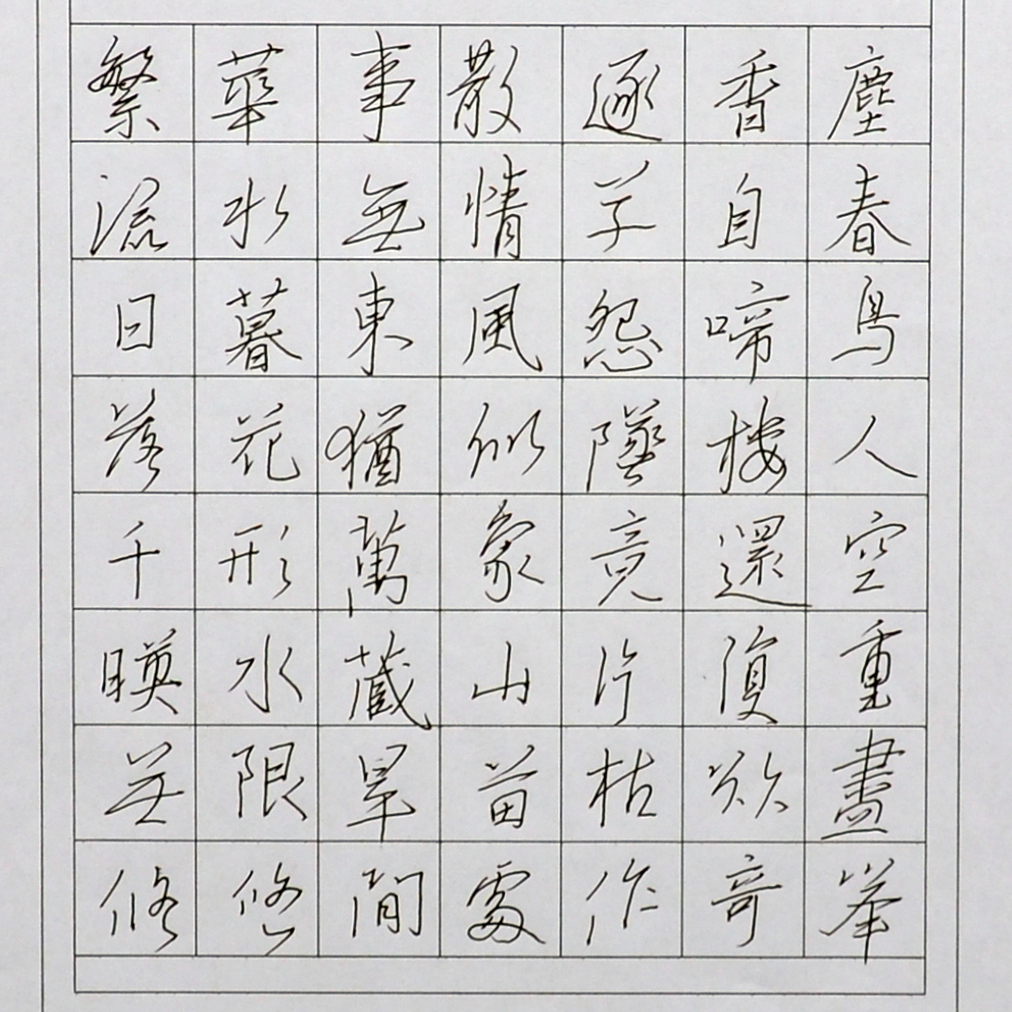 繁華事散逐香塵
流水無情草自春
日暮東風怨啼鳥
落花猶似墜樓人
千形萬象竟還空
暎水藏山片復重
無限旱苗枯欲盡
悠悠間處作奇峯